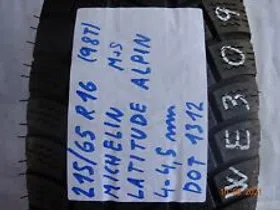 215/65 R16 (98T)
MICHELIN M+S
LATITUDE ALPIN
4-4,5 mm
DOT 1312
WE309